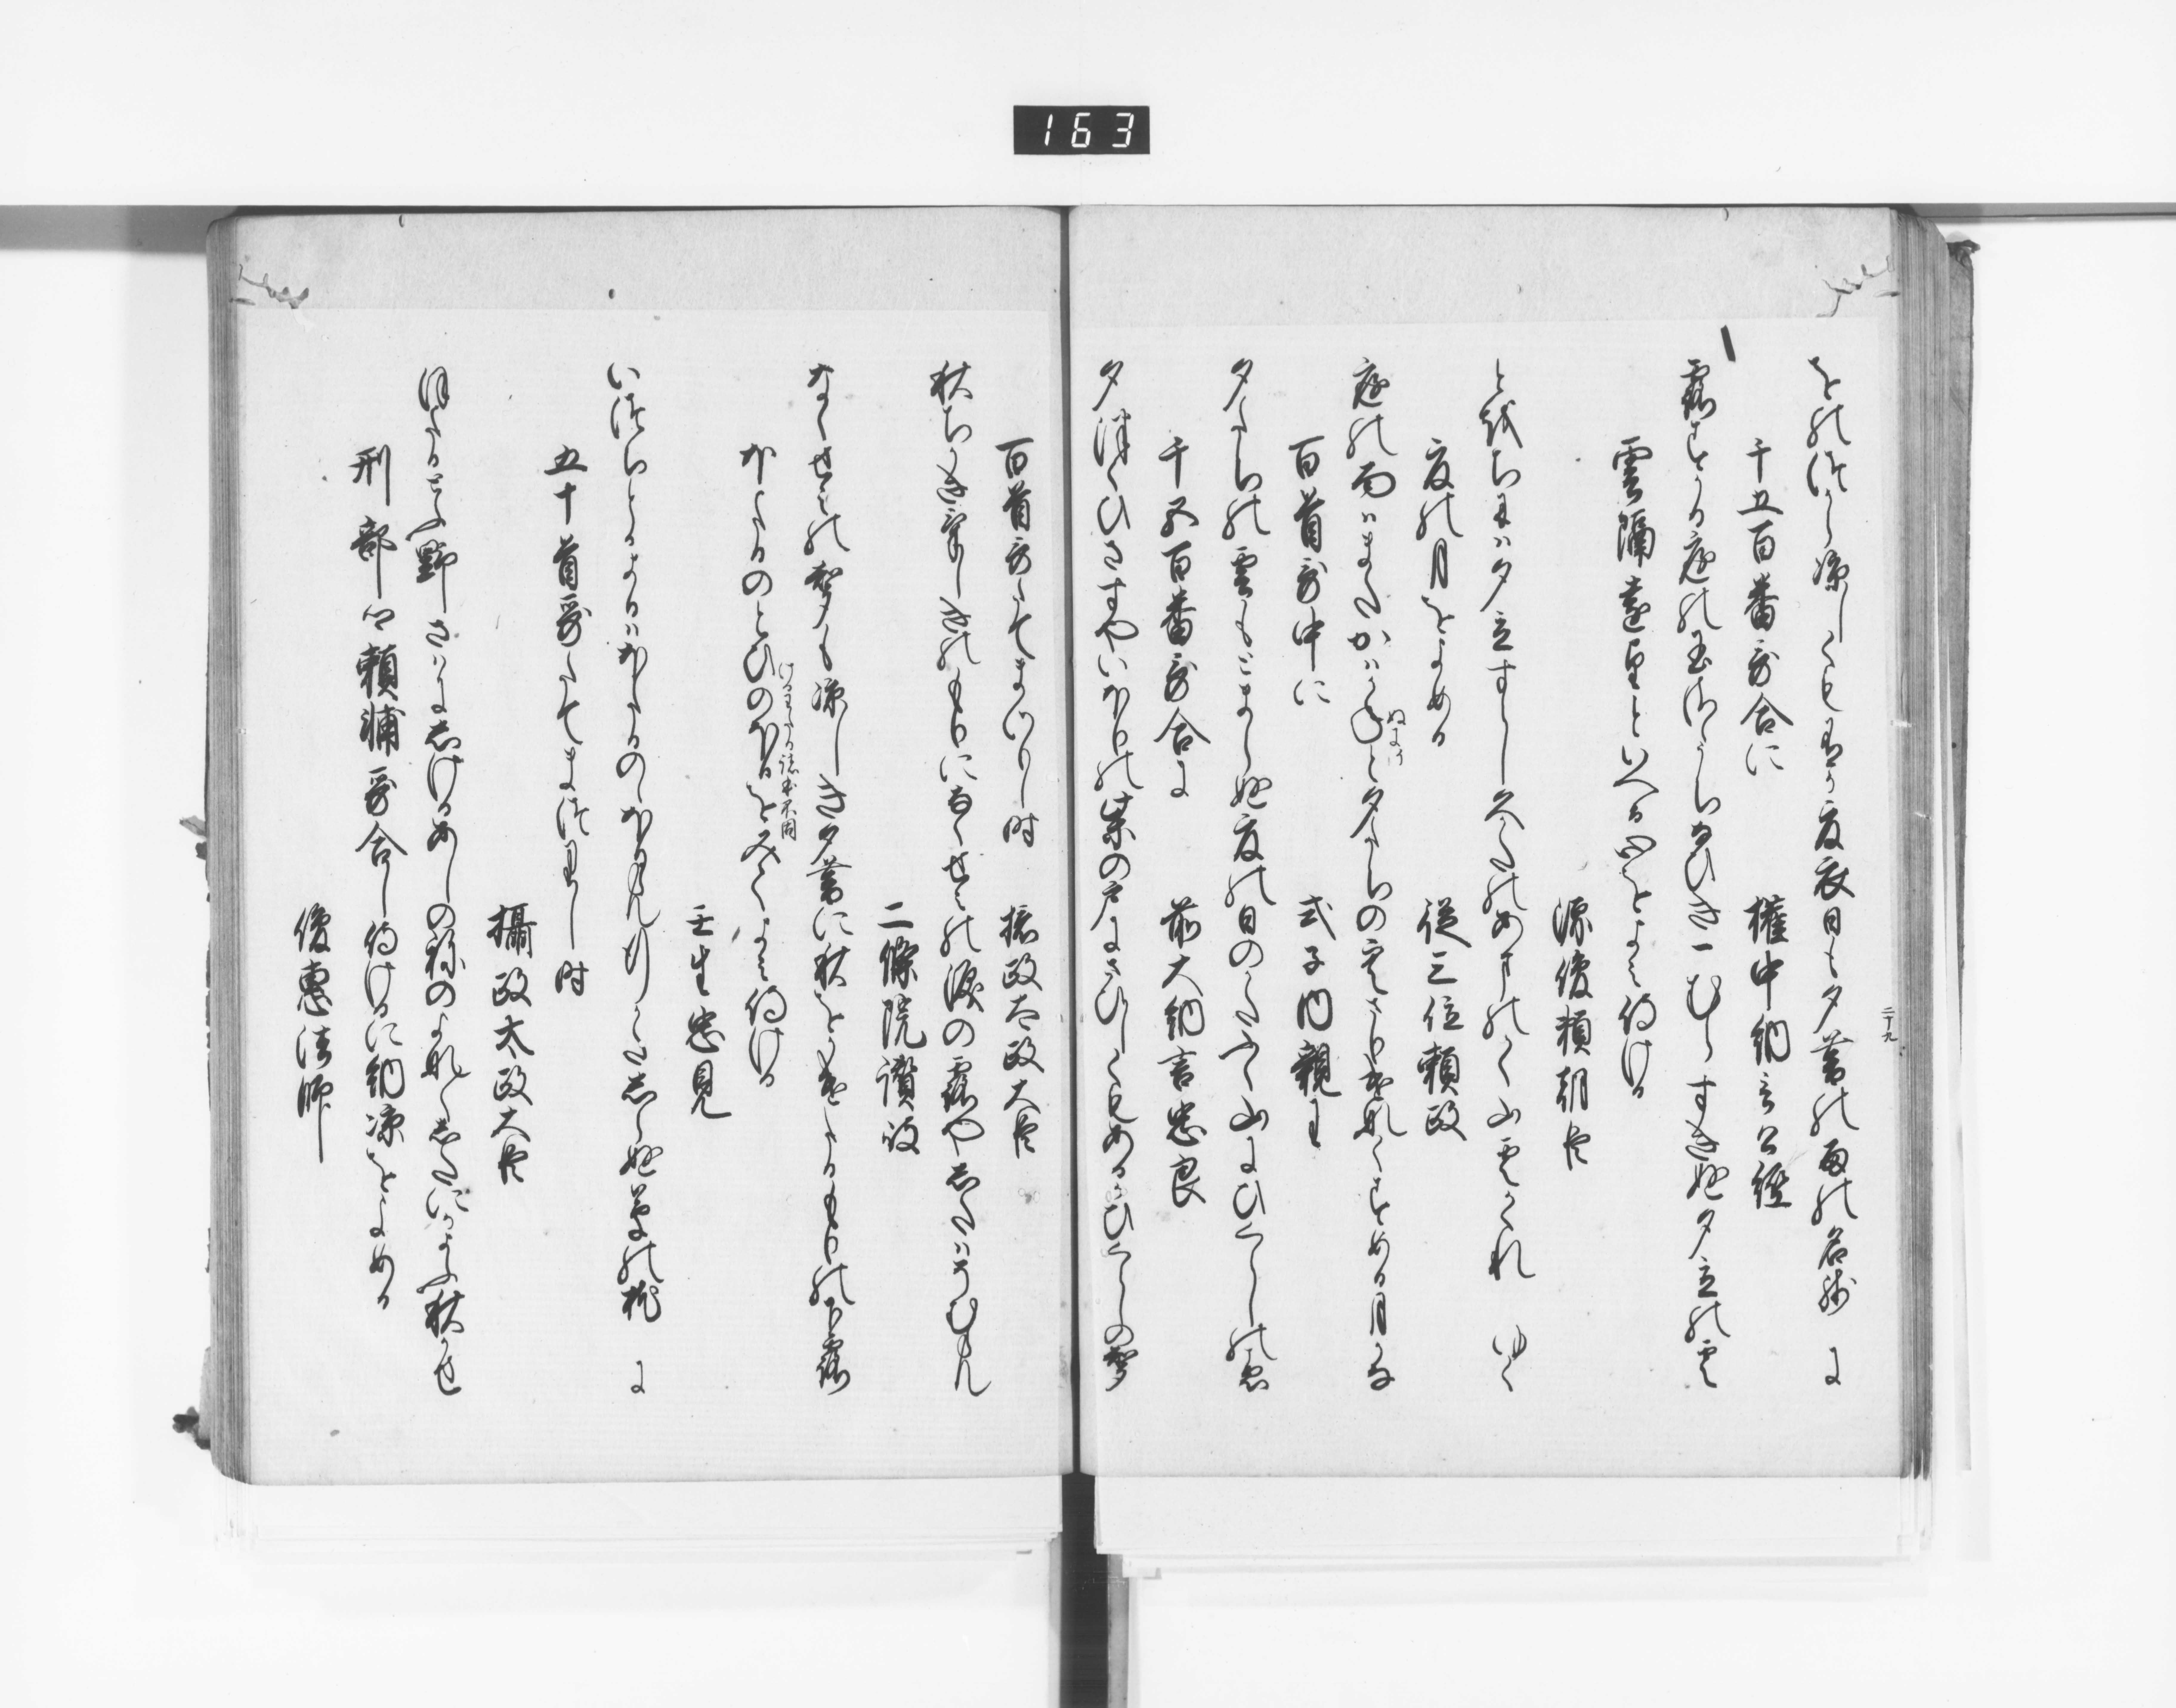 163
二十九
をのつから涼しくもあるか夏衣日も夕暮の雨の名残に
千五百番哥合に　権中納言公経
露すかる庭の玉さゝうちなひき一むらすきぬ夕立の雲
雲隔遠望といへる心をよみ侍ける
源俊頼朝臣
とをちには夕立すらし久かたのあまのかく山雲かくれゆく
夏の月をよめる　従三位頼政
庭の面はまたかはかねと夕たちの空さりけなくすめる月かな
百首哥中に　式子内親王
夕たちの雲もとまらぬ夏の日のかたふく山にひくらしの声
千五百番哥合に　前大納言忠良
夕つくひさすやいほりの柴の戸にさひしくもあるかひくらしの声
百首哥たてまつりし時　摂政太政大臣
秋ちかきけしきのもりになくせみの涙の露やしたはそむらん
二條院讃岐
なくせみの声も涼しき夕暮に秋をかけたるもりの下露
諸本不同
ほたるのとひのほるをみてよみ侍ける
壬生忠見
いつちとかよるはほたるののほるらん行かたしらぬ草の枕に
五十首哥たてまつりし時
攝政太政大臣
ほたるとふ野さはにしけるあしの祢のよなよなしたにかよふ秋かせ
刑部卿頼輔哥合し侍けるに納涼をよめる
俊恵法師